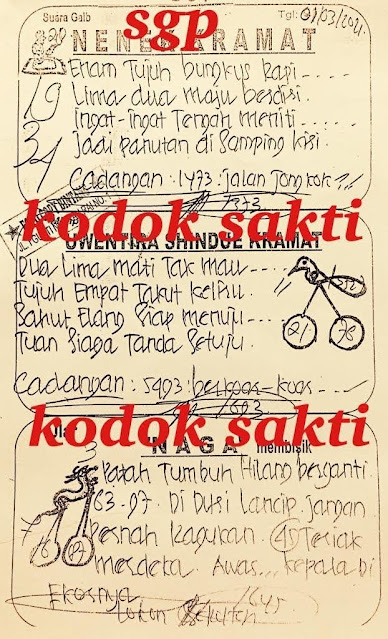 Suara Gaib
Tgl: 01/03/2021
sgp
NENEK KRAMAT
Enam Tujuh bungkus Rapi....
Lima dua maju berdisi.
Ingat-ingat Tengah meniti....
Jadi panutan di Samping kiri
19
34
Cadangan: 1473: Jalan Jongkok?!
7373
kodok sakti
UWENTIRA SHINDUE KRAMAT
Dua Lima mati Tak mau----
Tujuh Empat Takut Keliru
Sahut Elang Siap menuju--
Tuan Siaga Tanda Setuju.
21
78
Cadangan: 5493:
1693
kodok sakti
"NAGA" membisik
3
Patah Tumbuh Hilang berganti
63-97. Di Duri Lancip. jangan
Pernah Ragukan. 45 Teriak
merdeka. Awas... Kepala Di
Ekornya
1645